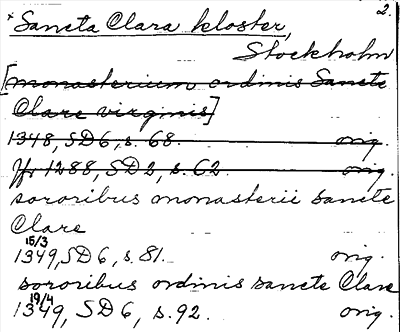 2.
x Sancta Clara kloster,
Stockholm
[monasterium ordinis Sancte
Clare virginis]
1348, SD 6, s. 68. orig.
1288, SD 2, s. 62 orig.
sororibus monasterii sancte
Clare
15/3
1349, SD 6, s. 81. orig.
sororibus ordinis sancte Clare
19/4
1349, SD 6, s. 92. orig.